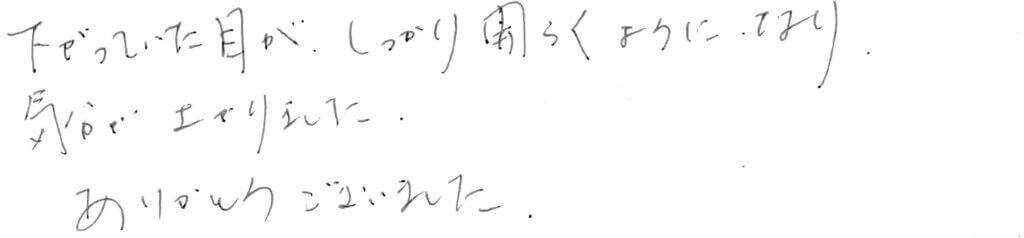 下がっていた目が、しっかり開らくようになり、
気分が上がりました。
ありがとうございました。